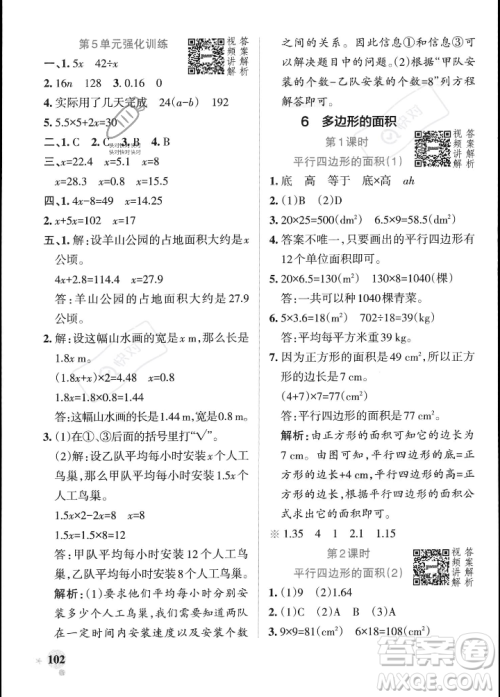 第5单元强化训练
视频讲解
答案解析
一、1. 5x　42÷x
2. 16n　128　3. 0.16　0
4. 实际用了几天完成　24(a-b)　192
5. 5.5×5+2x=30
二、1. C　2. C　3. B　4. B
三、x=0.45　x=25　x=0.8
x=9.15　x=8.1　x=9
四、1. 4x-8=10.4　x=4.6
2. x+5x=90　x=15
五、1. 解：设羊山公园的占地面积大约是x
公顷。
4x+2.8=114.4　x=27.9
答：羊山公园的占地面积大约是27.9
公顷。
2. 解：设这幅山水画的宽是x m，则长是
1.8x m。
(1.8x+x)×2=4.48　x=0.8
1.8x=1.8×0.8=1.44
答：这幅山水画的长是1.44 m，宽是0.8 m。
3. (1)在①、③后面的括号里打“√”。
(2)解：设乙队平均每小时安装x个人工
鸟巢，那么甲队平均每小时安装1.5x个
人工鸟巢。
1.5x×2-2x=8　x=8
1.5x=1.5×8=12
答：甲队平均每小时安装12个人工鸟
巢，乙队平均每小时安装8个人工鸟巢。
解析：(1)要求甲、乙两队平均每小时分
别安装多少个人工鸟巢，需要知道两队
安装的时间与安装的个数之间的关系或
之间的关系，因此信息①和信息③可以
解决题目中的问题。(2)根据“甲队安
装的个数-乙队安装的个数=8”列方程
解答即可。
6　多边形的面积
第1课时
平行四边形的面积(1)
视频讲解
答案解析
1. 底　高　等于　底×高　ah
2. (1)B　(2)C
3. 20×25=500(dm²)　6×1.5=9(cm²)
4. 答案不唯一，只要画出的平行四边形的面积
是12个单位面积即可。
5. 20×6.5=130(m²)　130×8=1040(棵)
答：这块地一共收1040棵青菜。
6. 5×3.6=18(m²)　702÷18=39(元)
答：平均每平方米39元。
7. 因为正方形的面积是49 cm²，所以正方形
的边长是7 cm。
(4+7)×7=77(cm²)
答：平行四边形的面积是77 cm²。
解析：由正方形的面积可知它的边长是
7 cm，平行四边形的底等于正方形的
边长+4 cm，平行四边形的高=正方形
的边长，根据平行四边形的面积公式
求面积即可。
※ 1.35　4　1　2.1　1.15
第2课时
平行四边形的面积(2)
视频讲解
答案解析
1. (1)9　(2)1.64
2. (1)C　(2)C
3. 9×9=81(cm²)　8×6=48(cm²)
102